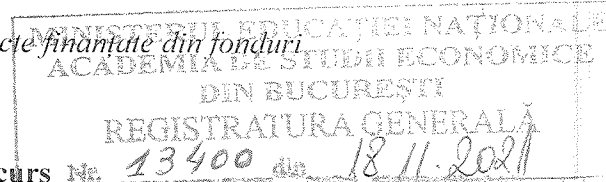 cte finanțate din fonduri
MINISTERUL EDUCAȚIEI NAȚIONALE
ACADEMIA DE STUDII ECONOMICE
DIN BUCUREȘTI
REGISTRATURA GENERALĂ
curs Nr. 13400 din 18 11. 2021